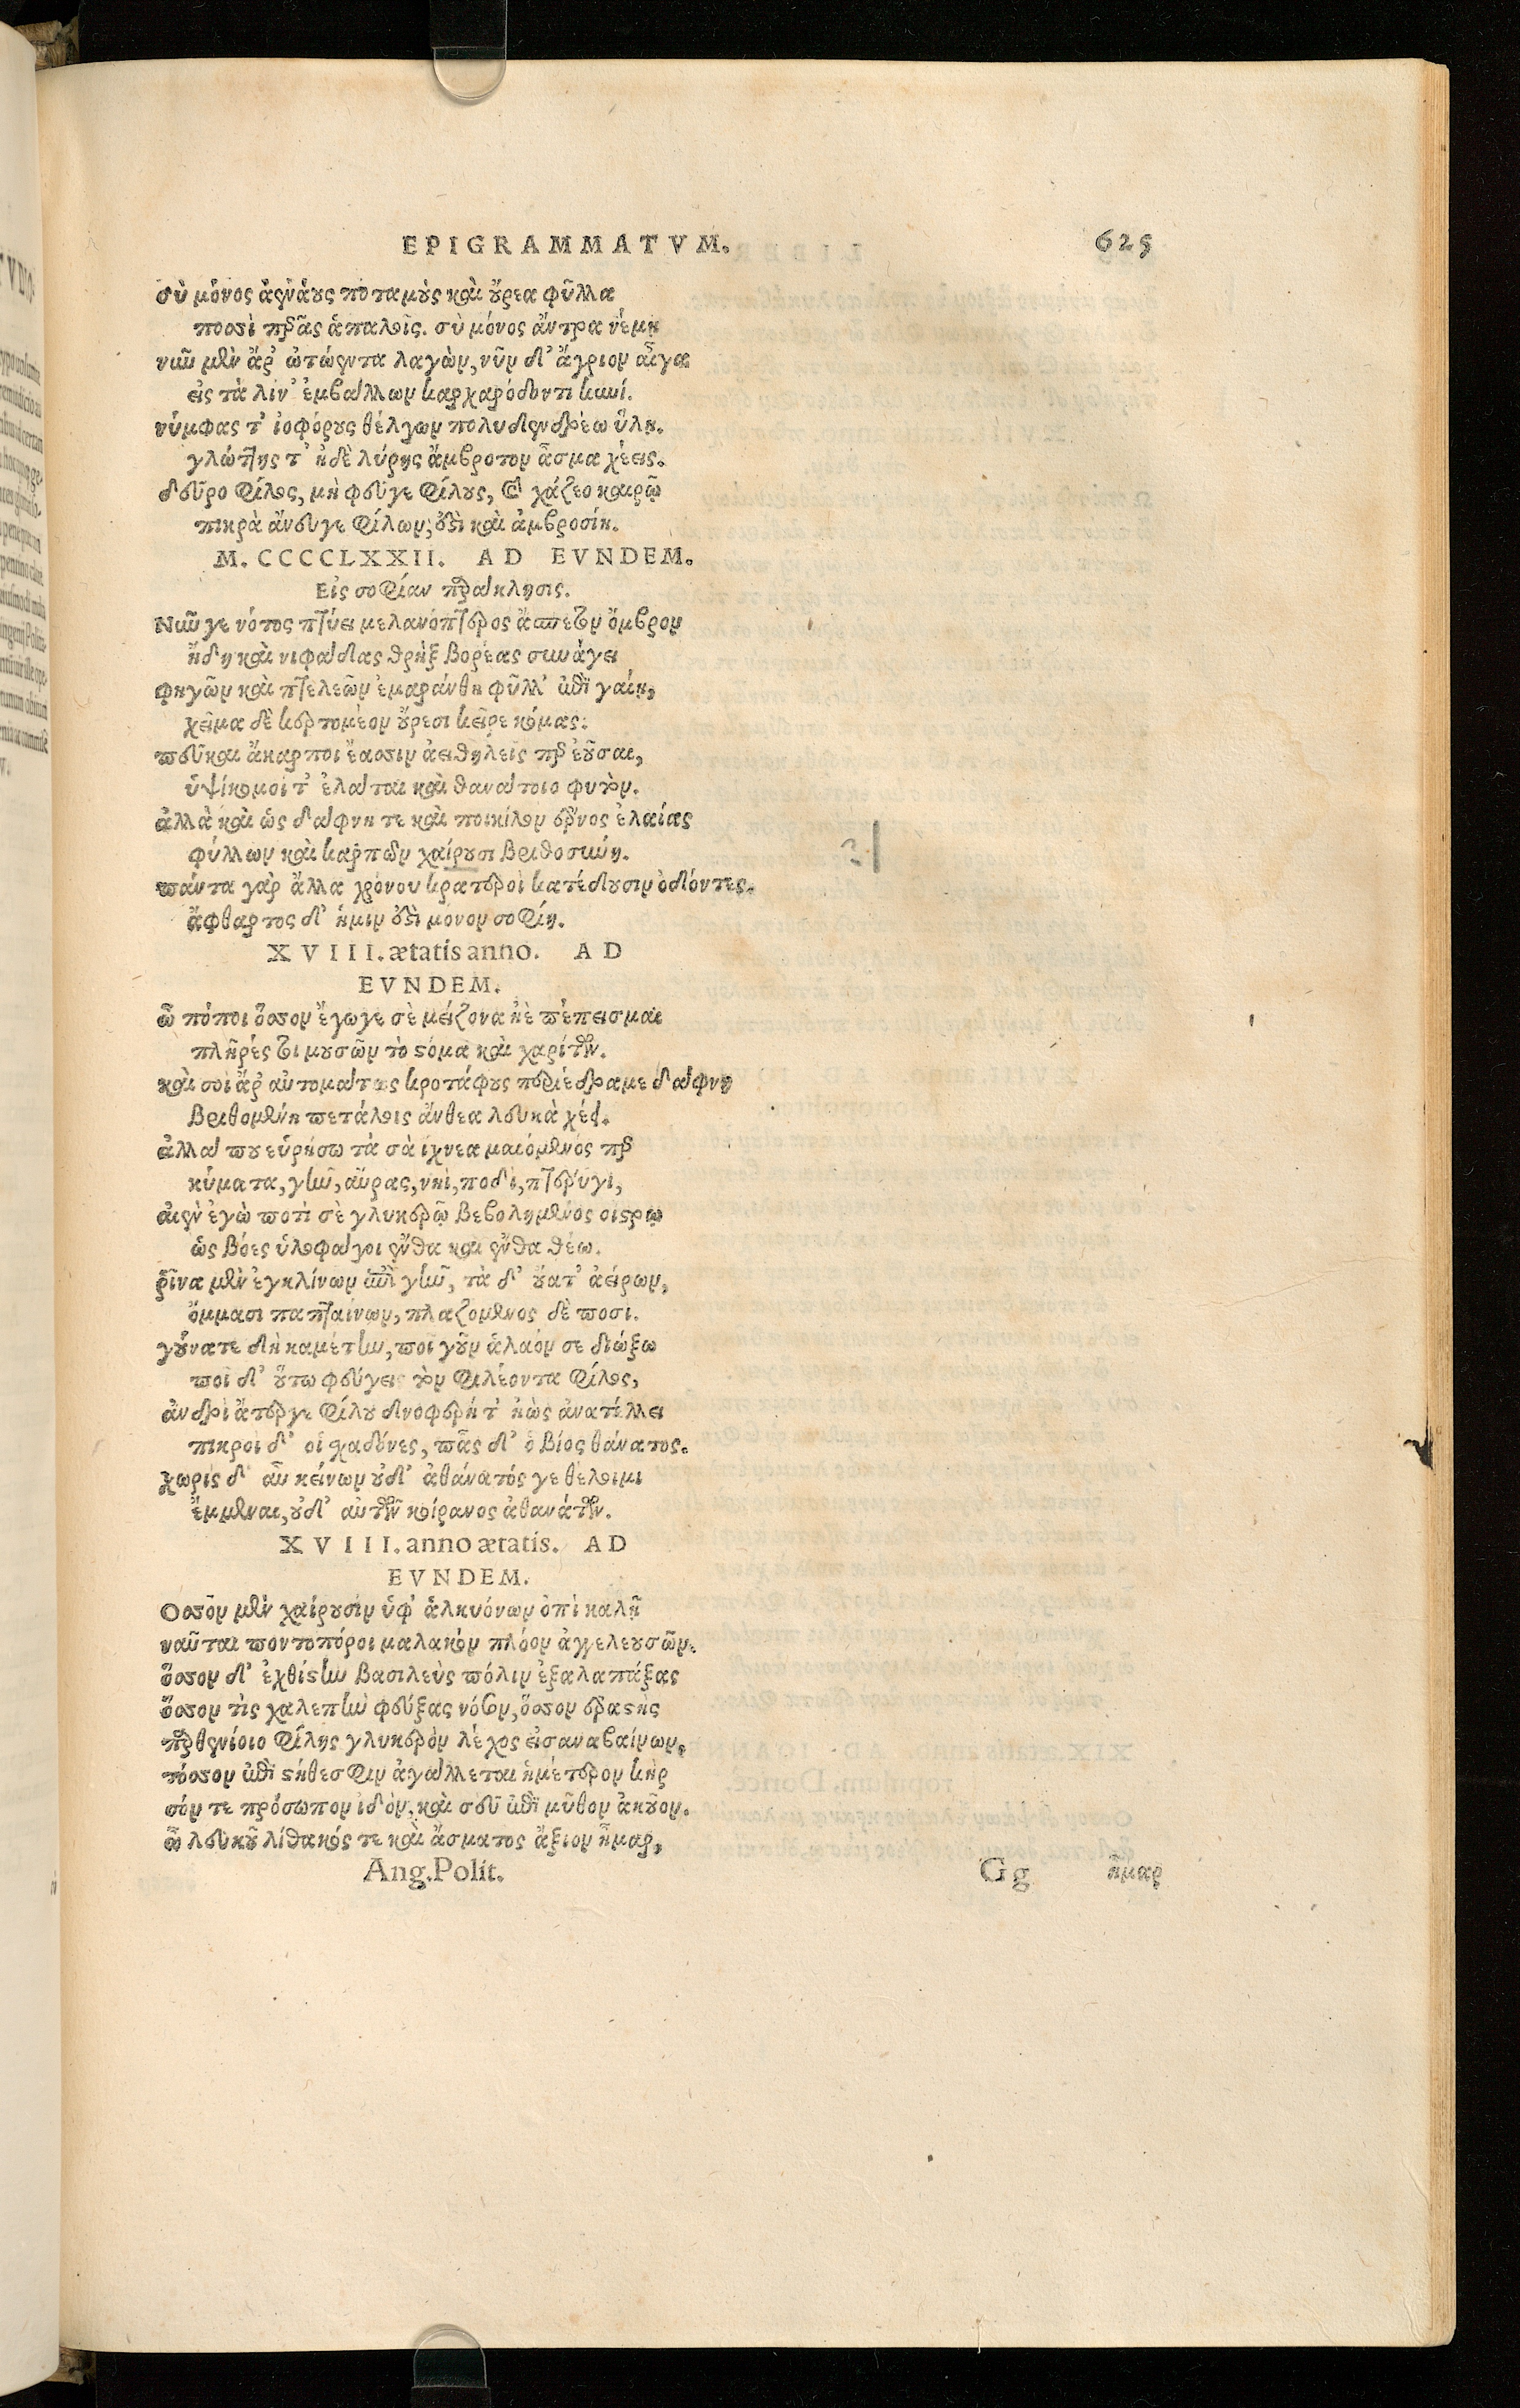 EPIGRAMMATVM. 625
σὺ μόνος ἀενάους ποταμοὺς καὶ οὔρεα φῦλλα
ποσσὶ περᾷς ἁπαλοῖς. σὺ μόνος ἄντρα νέμῃ
νιῦ μὲν ἄρ' ὠτώεντα λαγὼν, νῦν δ' ἄγριον αἶγα
εἰς τὰ λίν' ἐμβάλλων καρχαρόδοντι κυνί.
νύμφας τ' ἰοφόρους θέλγων πολυδενδρέω ὕλῃ.
γλώττης τ' ἠδὲ λύρης ἄμβροτον ἆσμα χέεις.
δεῦρο φίλος, μὴ φεῦγε φίλους, καὶ χάζεο καιρῷ
πικρὰ ἄνευγε φίλων, ἐστὶ καὶ ἀμβροσίη.
M. CCCCLXXII. AD EVNDEM.
Εἰς σοφίαν παράκλησις.
Νῦν γε νότος πτύει μελανόπτερος ἄσπετον ὄμβρον
ἤδη καὶ νιφάδας θρὴξ βορέας συνάγει
φηγῶν καὶ πτελεῶν ἐμαράνθη φῦλλ' ἐπὶ γαίῃ,
χεῖμα δὲ κερτομέον οὔρεσι κεῖρε κόμας.
πεῦκαι ἄκαρποι ἔασσιν ἀειθηλεῖς περ ἐοῦσαι,
ὑψίκομοί τ' ἐλάται καὶ θανάτοιο φυτὸν.
ἀλλὰ καὶ ὣς δάφνη τε καὶ ποικίλον ἔρνος ἐλαίας
φύλλων καὶ καρπῶν χαίρουσι βριθοσύνῃ.
πάντα γὰρ ἄλλα χρόνου κρατεροὶ κατέδουσιν ὀδόντες.
ἄφθαρτος δ' ἡμιν ἐστὶ μόνον σοφίη.
XVIII. ætatis anno. AD
EVNDEM.
ὢ πόποι ὅσσον ἔγωγε σὲ μείζονα ἠὲ πέπεισμαι
πλῆρές τοι μουσῶν τὸ στόμα καὶ χαρίτων.
καὶ σοὶ ἄρ' αὐτομάτως κροτάφους περιέδραμε δάφνη
βριθομένη πετάλοις ἄνθεα λευκὰ χέει.
ἀλλά που εὑρήσω τὰ σὰ ἴχνεα μαιόμενός περ
κύματα, γῆν, αὔρας, νηὶ, ποδὶ, πτερύγι,
αἰὲν ἐγὼ ποτὶ σὲ γλυκερῷ βεβολημένος οἴστρῳ
ὡς βόες ὑλοφάγοι ἔνθα καὶ ἔνθα θέω.
ῥῖνα μὲν ἐγκλίνων ἐπὶ γῆν, τὰ δ' οὔατ' ἀείρων,
ὄμμασι παπταίνων, πλαζόμενος δὲ ποσι.
γούνατε δὴ καμέτην, ποῖ γοῦν ἀλαόν σε διώξω
ποῖ δ' οὕτω φεύγεις τὸν φιλέοντα φίλος,
ἀνδρὶ ἄτεργε φίλου δνοφερή τ' ἠὼς ἀνατέλλει
πικροὶ δ' οἱ χαδόνες, πᾶς δ' ὁ βίος θάνατος.
χωρὶς δ' αὖ κείνων οὐδ' ἀθάνατός γε θέλοιμι
ἔμμεναι, οὐδ' αὐτῶν κοίρανος ἀθανάτων.
XVIII. anno ætatis. AD
EVNDEM.
Οσσον μὲν χαίρουσιν ὑφ' ἀλκυόνων ὀπὶ καλῇ
ναῦται ποντοπόροι μαλακὸν πλόον ἀγγελευσῶν.
ὅσσον δ' ἐχθίστην βασιλεὺς πόλιν ἐξαλαπάξας
ὅσσον τὶς χαλεπὴν φεύξας νόσον, ὅσσον ἐραστὴς
παρθενίοιο φίλης γλυκερὸν λέχος εἰσαναβαίνων,
τόσσον ἐπὶ στήθεσφιν ἀγάλλεται ἡμέτερον κὴρ
σόν τε πρόσωπον ἰδὸν, καὶ σεῦ ἐπὶ μῦθον ἀκοῦον.
ὢ λευκοῦ λίθακός τε καὶ ἄσματος ἄξιον ἦμαρ,
Ang. Polit. Gg ἦμαρ